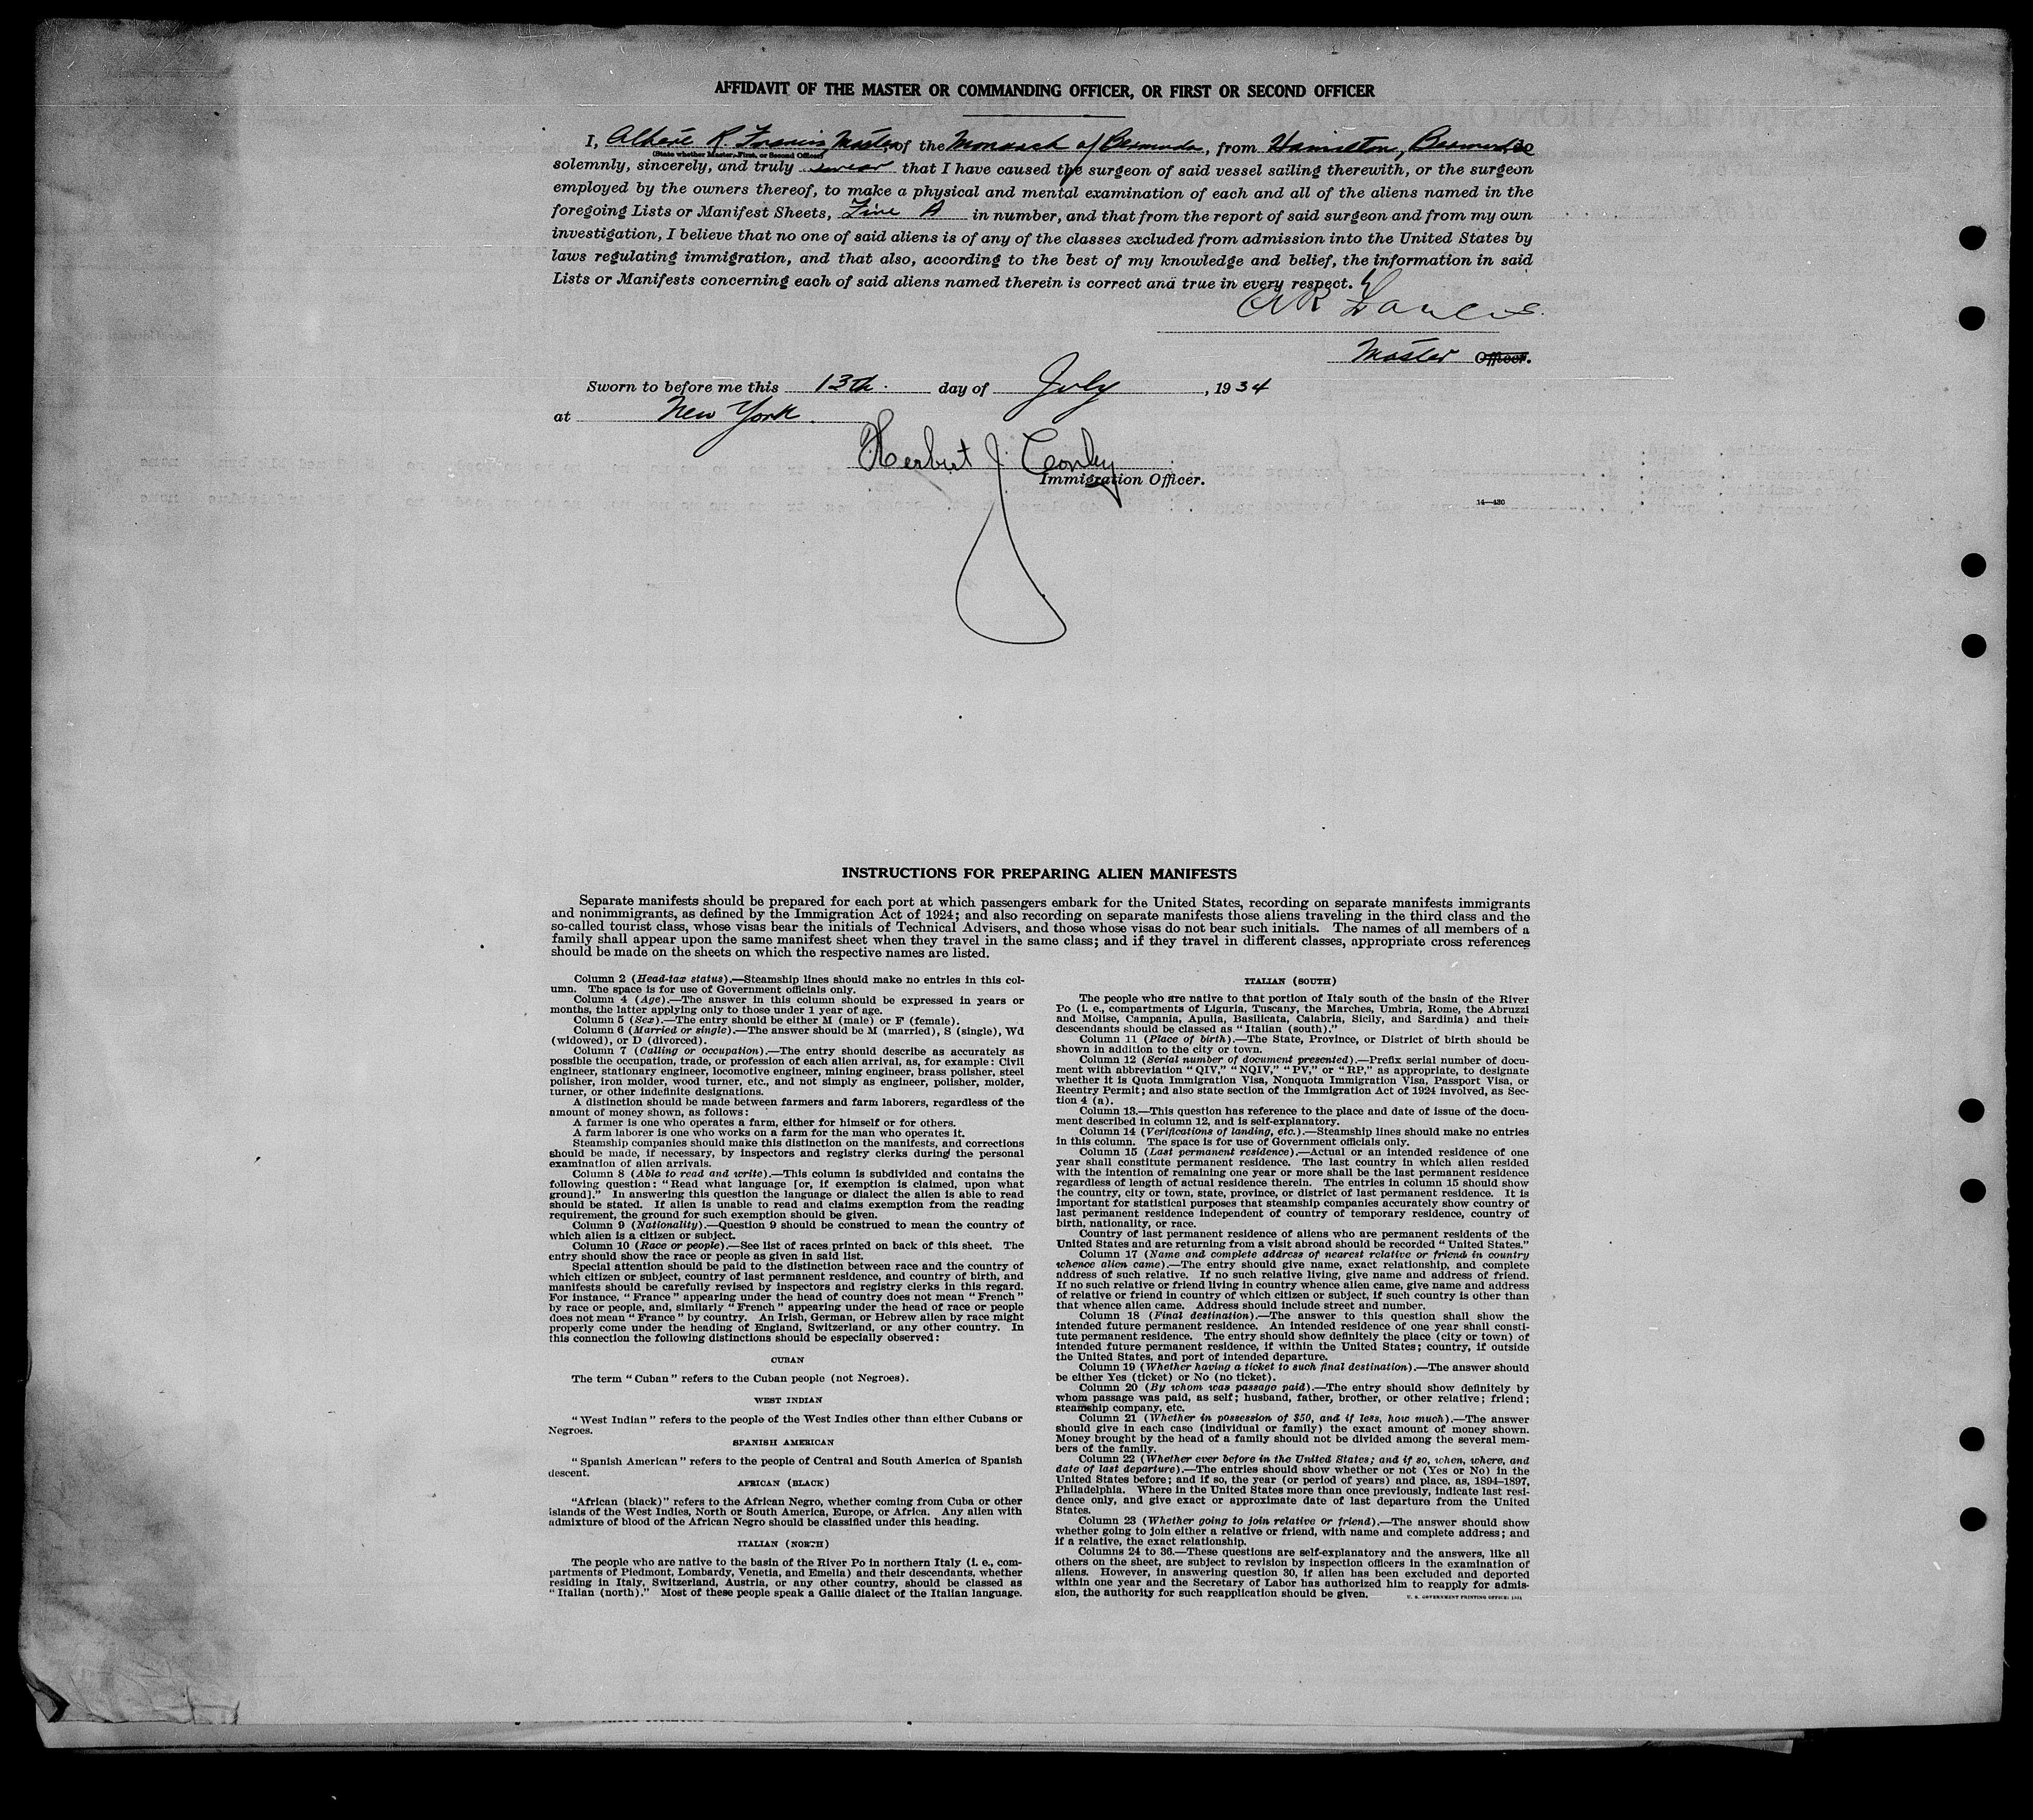 AFFIDAVIT OF THE MASTER OR COMMANDING OFFICER, OR FIRST OR SECOND OFFICER
I, Albert R. Francis Master of the Monarch of Bermuda, from Hamilton, Bermuda
(State whether Master, First, or Second Officer)
solemnly, sincerely, and truly swear that I have caused the surgeon of said vessel sailing therewith, or the surgeon
employed by the owners thereof, to make a physical and mental examination of each and all of the aliens named in the
foregoing Lists or Manifest Sheets, Five A in number, and that from the report of said surgeon and from my own
investigation, I believe that no one of said aliens is of any of the classes excluded from admission into the United States by
laws regulating immigration, and that also, according to the best of my knowledge and belief, the information in said
Lists or Manifests concerning each of said aliens named therein is correct and true in every respect.
AR Francis
Master Officer.
Sworn to before me this 13th. day of July, 1934
at New York.
Herbert J. Conley
Immigration Officer.
14—430
INSTRUCTIONS FOR PREPARING ALIEN MANIFESTS
Separate manifests should be prepared for each port at which passengers embark for the United States, recording on separate manifests immigrants
and nonimmigrants, as defined by the Immigration Act of 1924; and also recording on separate manifests those aliens traveling in the third class and the
so-called tourist class, whose visas bear the initials of Technical Advisers, and those whose visas do not bear such initials. The names of all members of a
family shall appear upon the same manifest sheet when they travel in the same class; and if they travel in different classes, appropriate cross references
should be made on the sheets on which the respective names are listed.
Column 2 (Head-tax status).—Steamship lines should make no entries in this col-
umn. The space is for use of Government officials only.
Column 4 (Age).—The answer in this column should be expressed in years or
months, the latter applying only to those under 1 year of age.
Column 5 (Sex).—The entry should be either M (male) or F (female).
Column 6 (Married or single).—The answer should be M (married), S (single), Wd
(widowed), or D (divorced).
Column 7 (Calling or occupation).—The entry should describe as accurately as
possible the occupation, trade, or profession of each alien arrival, as, for example: Civil
engineer, stationary engineer, locomotive engineer, mining engineer, brass polisher, steel
polisher, iron molder, wood turner, etc., and not simply as engineer, polisher, molder,
turner, or other indefinite designations.
A distinction should be made between farmers and farm laborers, regardless of the
amount of money shown, as follows:
A farmer is one who operates a farm, either for himself or for others.
A farm laborer is one who works on a farm for the man who operates it.
Steamship companies should make this distinction on the manifests, and corrections
should be made, if necessary, by inspectors and registry clerks during the personal
examination of alien arrivals.
Column 8 (Able to read and write).—This column is subdivided and contains the
following question: "Read what language [or, if exemption is claimed, upon what
ground]." In answering this question the language or dialect the alien is able to read
should be stated. If alien is unable to read and claims exemption from the reading
requirement, the ground for such exemption should be given.
Column 9 (Nationality).—Question 9 should be construed to mean the country of
which alien is a citizen or subject.
Column 10 (Race or people).—See list of races printed on back of this sheet. The
entry should show the race or people as given in said list.
Special attention should be paid to the distinction between race and the country of
which citizen or subject, country of last permanent residence, and country of birth, and
manifests should be carefully revised by inspectors and registry clerks in this regard.
For instance, "France" appearing under the head of country does not mean "French"
by race or people, and, similarly "French" appearing under the head of race or people
does not mean "France" by country. An Irish, German, or Hebrew alien by race might
properly come under the heading of England, Switzerland, or any other country. In
this connection the following distinctions should be especially observed:
CUBAN
The term "Cuban" refers to the Cuban people (not Negroes).
WEST INDIAN
"West Indian" refers to the people of the West Indies other than either Cubans or
Negroes.
SPANISH AMERICAN
"Spanish American" refers to the people of Central and South America of Spanish
descent.
AFRICAN (BLACK)
"African (black)" refers to the African Negro, whether coming from Cuba or other
islands of the West Indies, North or South America, Europe, or Africa. Any alien with
admixture of blood of the African Negro should be classified under this heading.
ITALIAN (NORTH)
The people who are native to the basin of the River Po in northern Italy (i. e., com-
partments of Piedmont, Lombardy, Venetia, and Emelia) and their descendants, whether
residing in Italy, Switzerland, Austria, or any other country, should be classed as
"Italian (north)." Most of these people speak a Gallic dialect of the Italian language.
ITALIAN (SOUTH)
The people who are native to that portion of Italy south of the basin of the River
Po (i. e., compartments of Liguria, Tuscany, the Marches, Umbria, Rome, the Abruzzi
and Molise, Campania, Apulia, Basilicata, Calabria, Sicily, and Sardinia) and their
descendants should be classed as "Italian (south)."
Column 11 (Place of birth).—The State, Province, or District of birth should be
shown in addition to the city or town.
Column 12 (Serial number of document presented).—Prefix serial number of docu-
ment with abbreviation "QIV," "NQIV," "PV," or "RP," as appropriate, to designate
whether it is Quota Immigration Visa, Nonquota Immigration Visa, Passport Visa, or
Reentry Permit; and also state section of the Immigration Act of 1924 involved, as Sec-
tion 4 (a).
Column 13.—This question has reference to the place and date of issue of the docu-
ment described in column 12, and is self-explanatory.
Column 14 (Verifications of landing, etc.).—Steamship lines should make no entries
in this column. The space is for use of Government officials only.
Column 15 (Last permanent residence).—Actual or an intended residence of one
year shall constitute permanent residence. The last country in which alien resided
with the intention of remaining one year or more shall be the last permanent residence
regardless of length of actual residence therein. The entries in column 15 should show
the country, city or town, state, province, or district of last permanent residence. It is
important for statistical purposes that steamship companies accurately show country of
last permanent residence independent of country of temporary residence, country of
birth, nationality, or race.
Country of last permanent residence of aliens who are permanent residents of the
United States and are returning from a visit abroad should be recorded "United States."
Column 17 (Name and complete address of nearest relative or friend in country
whence alien came).—The entry should give name, exact relationship, and complete
address of such relative. If no such relative living, give name and address of friend.
If no such relative or friend living in country whence alien came, give name and address
of relative or friend in country of which citizen or subject, if such country is other than
that whence alien came. Address should include street and number.
Column 18 (Final destination).—The answer to this question shall show the
intended future permanent residence. An intended residence of one year shall consti-
tute permanent residence. The entry should show definitely the place (city or town) of
intended future permanent residence, if within the United States; country, if outside
the United States, and port of intended departure.
Column 19 (Whether having a ticket to such final destination).—The answer should
be either Yes (ticket) or No (no ticket).
Column 20 (By whom was passage paid).—The entry should show definitely by
whom passage was paid, as self; husband, father, brother, or other relative; friend;
steamship company, etc.
Column 21 (Whether in possession of $50, and if less, how much).—The answer
should give in each case (individual or family) the exact amount of money shown.
Money brought by the head of a family should not be divided among the several mem-
bers of the family.
Column 22 (Whether ever before in the United States; and if so, when, where, and
date of last departure).—The entries should show whether or not (Yes or No) in the
United States before; and if so, the year (or period of years) and place, as, 1894–1897,
Philadelphia. Where in the United States more than once previously, indicate last resi-
dence only, and give exact or approximate date of last departure from the United
States.
Column 23 (Whether going to join relative or friend).—The answer should show
whether going to join either a relative or friend, with name and complete address; and
if a relative, the exact relationship.
Columns 24 to 36.—These questions are self-explanatory and the answers, like all
others on the sheet, are subject to revision by inspection officers in the examination of
aliens. However, in answering question 30, if alien has been excluded and deported
within one year and the Secretary of Labor has authorized him to reapply for admis-
sion, the authority for such reapplication should be given.
U. S. GOVERNMENT PRINTING OFFICE: 1931